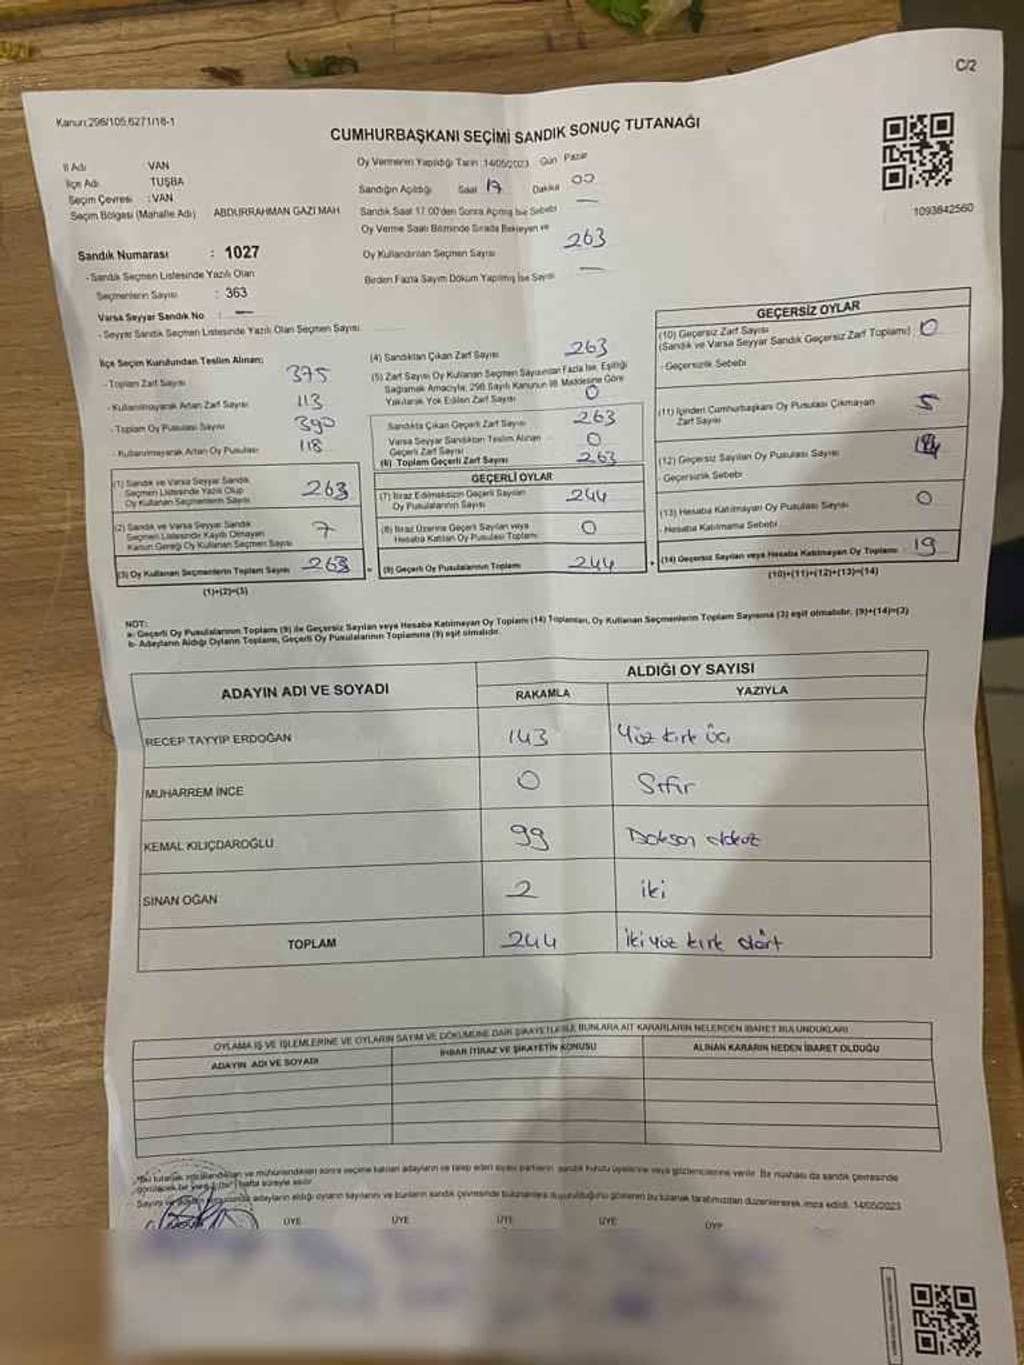 C/2
Kanun:298/105,6271/18-1
CUMHURBAŞKANI SEÇİMİ SANDIK SONUÇ TUTANAĞI
İl Adı : VAN
İlçe Adı : TUŞBA
Seçim Çevresi : VAN
Seçim Bölgesi (Mahalle Adı) ABDURRAHMAN GAZİ MAH.
Sandık Numarası : 1027
- Sandık Seçmen Listesinde Yazılı Olan
Seçmenlerin Sayısı : 363
Varsa Seyyar Sandık No : —
- Seyyar Sandık Seçmen Listesinde Yazılı Olan Seçmen Sayısı
Oy Vermenin Yapıldığı Tarih :14/05/2023 Gün Pazar
Sandığın Açıldığı Saat 17 Dakika 00
Sandık Saat 17:00'den Sonra Açılmış İse Sebebi —
Oy Verme Saati Bitiminde Sırada Bekleyen ve
Oy Kullandırılan Seçmen Sayısı 263
Birden Fazla Sayım Döküm Yapılmış İse Sayısı —
1093842560
İlçe Seçim Kurulundan Teslim Alınan;
- Toplam Zarf Sayısı 375
- Kullanılmayarak Artan Zarf Sayısı 113
- Toplam Oy Pusulası Sayısı 390
- Kullanılmayarak Artan Oy Pusulası 118
(1) Sandık ve Varsa Seyyar Sandık
Seçmen Listesinde Yazılı Olup
Oy Kullanan Seçmenlerin Sayısı 263
(2) Sandık ve Varsa Seyyar Sandık
Seçmen Listesinde Kayıtlı Olmayan
Kanun Gereği Oy Kullanan Seçmen Sayısı 7
(3) Oy Kullanan Seçmenlerin Toplam Sayısı 263
(1)+(2)=(3)
(4) Sandıktan Çıkan Zarf Sayısı 263
(5) Zarf Sayısı Oy Kullanan Seçmen Sayısından Fazla İse, Eşitliği
Sağlamak Amacıyla, 298 Sayılı Kanunun 98. Maddesine Göre
Yakılarak Yok Edilen Zarf Sayısı 0
Sandıkta Çıkan Geçerli Zarf Sayısı 263
Varsa Seyyar Sandıktan Teslim Alınan
Geçerli Zarf Sayısı 0
(6) Toplam Geçerli Zarf Sayısı 263
GEÇERLİ OYLAR
(7) İtiraz Edilmeksizin Geçerli Sayılan
Oy Pusulası Sayısı 244
(8) İtiraz Üzerine Geçerli Sayılan veya
Hesaba Katılan Oy Pusulası Toplamı 0
(9) Geçerli Oy Pusulalarının Toplamı 244
GEÇERSİZ OYLAR
(10) Geçersiz Zarf Sayısı
(Sandık ve Varsa Seyyar Sandık Geçersiz Zarf Toplamı) 0
- Geçersizlik Sebebi
(11) İçinden Cumhurbaşkanı Oy Pusulası Çıkmayan
Zarf Sayısı 5
(12) Geçersiz Sayılan Oy Pusulası Sayısı
- Geçersizlik Sebebi
(13) Hesaba Katılmayan Oy Pusulası Sayısı 0
- Hesaba Katılmama Sebebi
(14) Geçersiz Sayılan veya Hesaba Katılmayan Oy Toplamı 19
(10)+(11)+(12)+(13)=(14)
NOT:
a- Geçerli Oy Pusulalarının Toplamı (9) ile Geçersiz Sayılan veya Hesaba Katılmayan Oy Toplamı (14) Toplamları, Oy Kullanan Seçmenlerin Toplam Sayısına (3) eşit olmalıdır. (9)+(14)=(3)
b- Adayların Aldığı Oyların Toplamı, Geçerli Oy Pusulalarının Toplamına (9) eşit olmalıdır.
ADAYIN ADI VE SOYADI
ALDIĞI OY SAYISI
RAKAMLA YAZIYLA
RECEP TAYYİP ERDOĞAN 143 Yüz kırk üç
MUHARREM İNCE 0 Sıfır
KEMAL KILIÇDAROĞLU 99 Doksan dokuz
SİNAN OĞAN 2 iki
TOPLAM 244 iki yüz kırk dört
OYLAMA İŞ VE İŞLEMLERİNE VE OYLARIN SAYIM VE DÖKÜMÜNE DAİR ŞİKAYETLER İLE BUNLARA AİT KARARLARIN NELERDEN İBARET BULUNDUKLARI
ADAYIN ADI VE SOYADI İHBAR İTİRAZ VE ŞİKAYETİN KONUSU ALINAN KARARIN NEDEN İBARET OLDUĞU
ve mühürlendikten sonra seçime katılan adayların ve talep eden siyasi partilerin sandık kurulu üyelerine veya gözlemcilerine verilir. Bir nüshası da sandık çevresinde
adayların aldığı oyların sayılarını ve bunların sandık çevresinde bulunanlara duyurulduğunu gösteren bu tutanak tarafımızdan düzenlenerek imza edildi. 14/05/2023
ÜYE ÜYE ÜYE ÜYE ÜYE